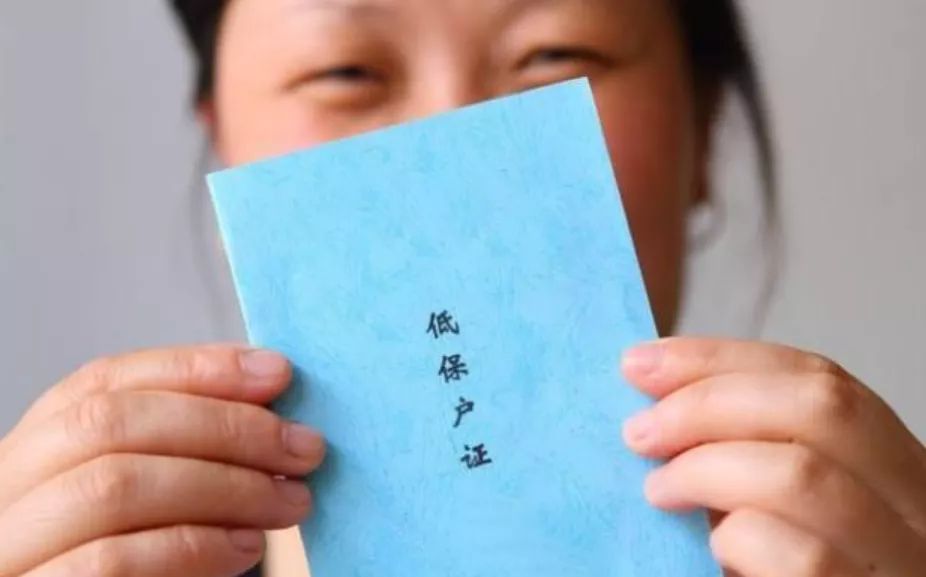 低保户证